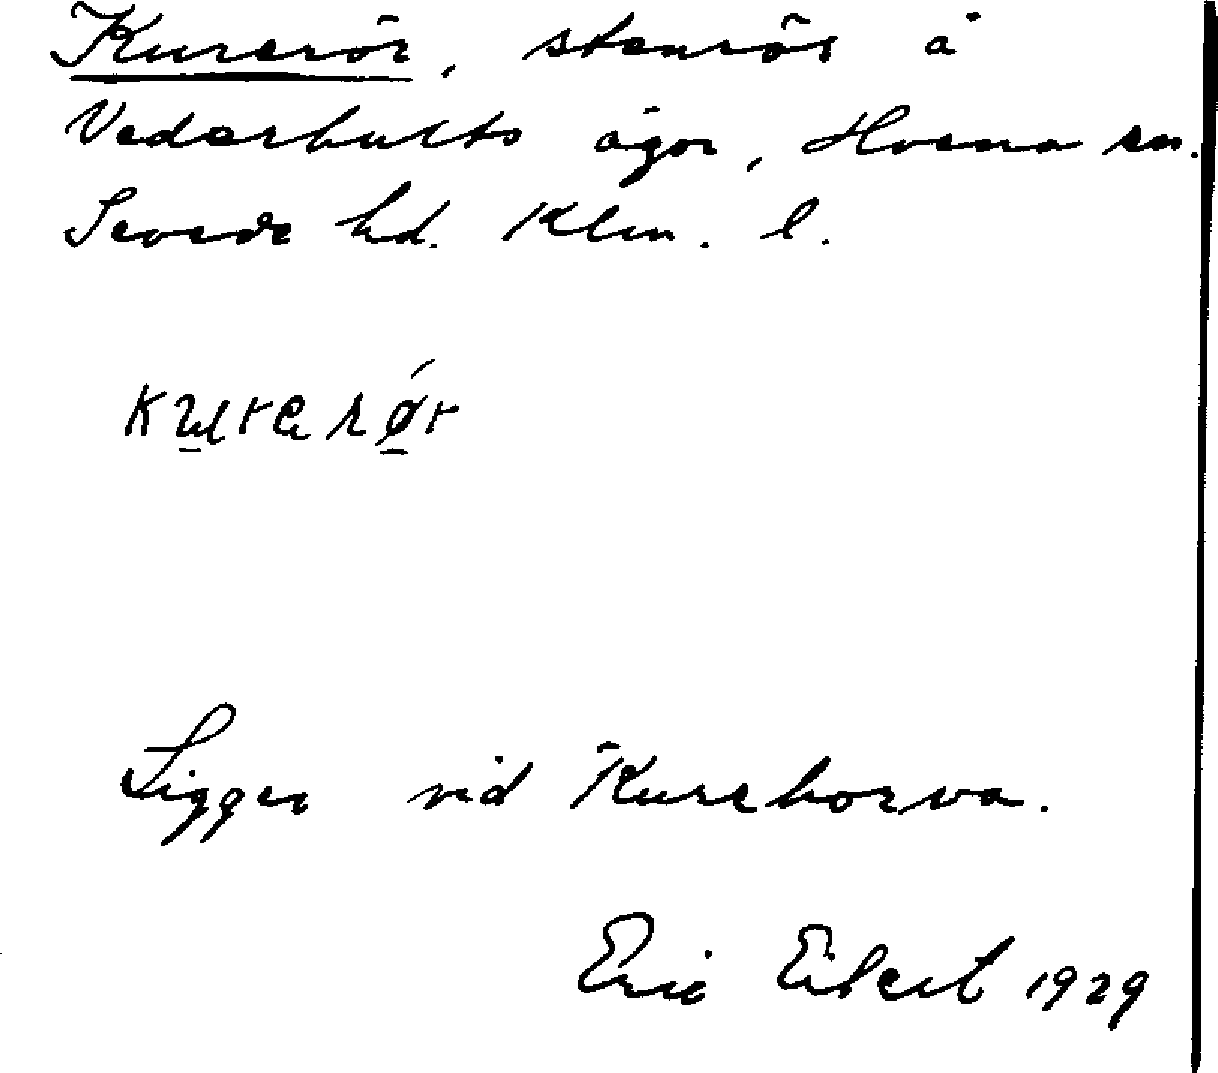 Kurerör, stenrös å
Vederhults ägor, Hvena sn.
Sevede hd. Klm. l.
Ligger vid Kurehorva.
Eric Elsert 1929